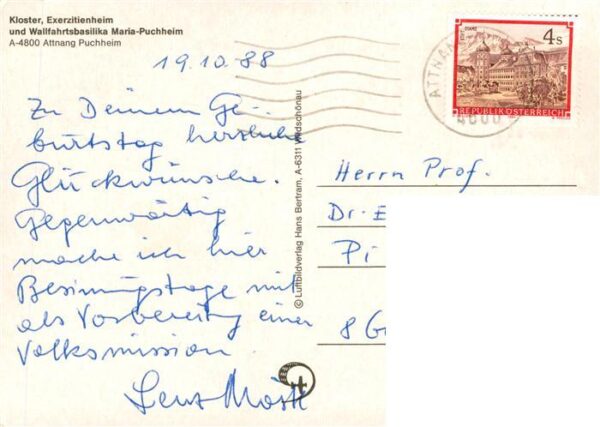 Kloster, Exerzitienheim
und Wallfahrtsbasilika Maria-Puchheim
A-4800 Attnang Puchheim
19.10.88
Zu Deinem Ge-
burtstag herzliche
Glückwünsche.
Gegenwärtig
mache ich hier
Besinnungstage mit
als Vorbereitung einer
Volksmission
© Luftbildverlag Hans Bertram, A-6311 Wildschönau
4 S
REPUBLIK ÖSTERREICH
ATTNAN
4800
Herrn Prof.
Dr. E
Pi
8 G